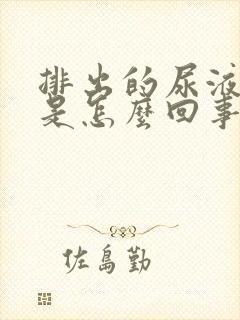 排出的尿液
是怎麼回事
佐島勤